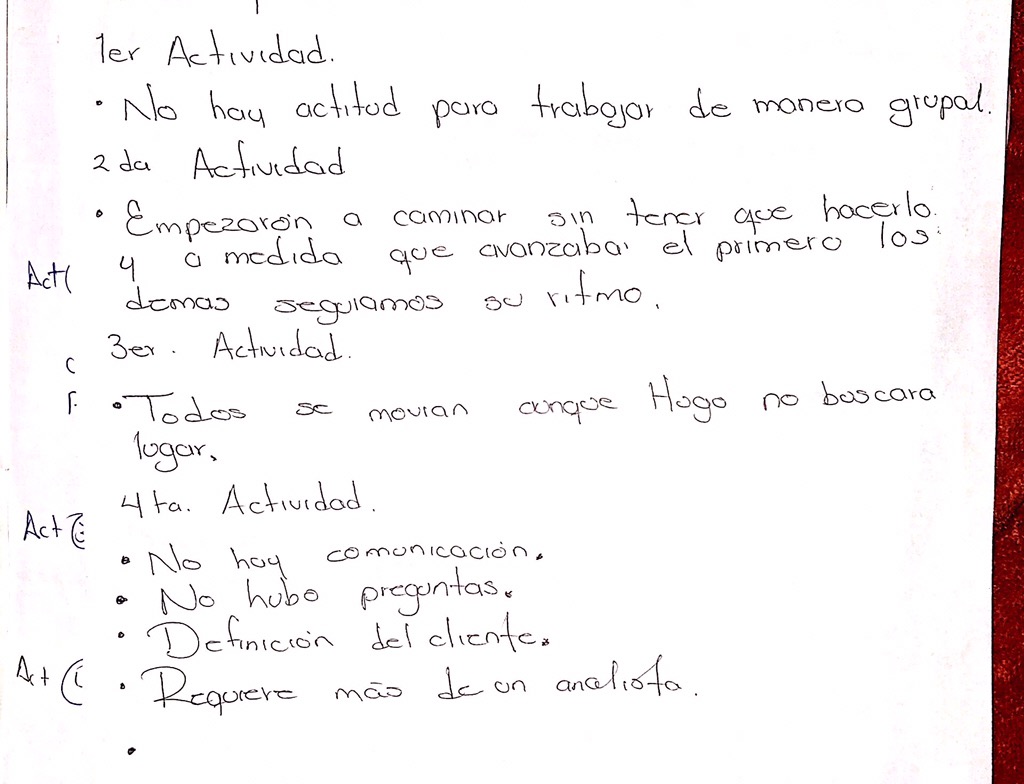 1er Actividad.
• No hay actitud para trabajar de manera grupal.
2da Actividad
• Empezarón a caminar sin tener que hacerlo.
y a medida que avanzaba el primero los
Act(
demas seguiamos su ritmo.
3er. Actividad.
• Todos se movian aunque Hugo no buscara
lugar.
4ta. Actividad.
Act
• No hay comunicación.
• No hubo preguntas.
• Definición del cliente.
Act (
• Requiere más de un analista.
•